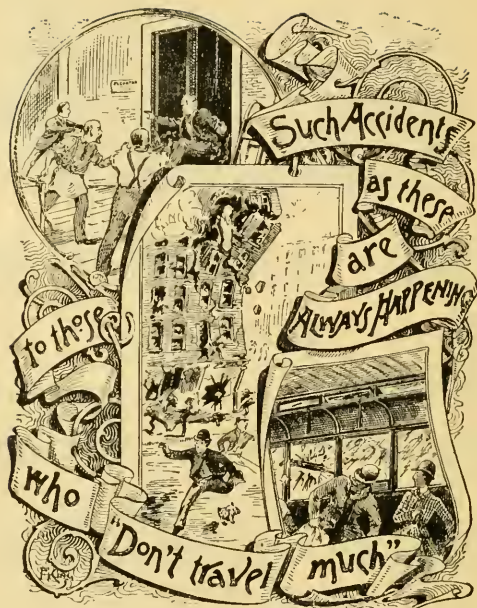 ELEVATOR
Such Accidents
as these
are
ALWAYS HAPPENING
to those
who
"Don't travel
much"